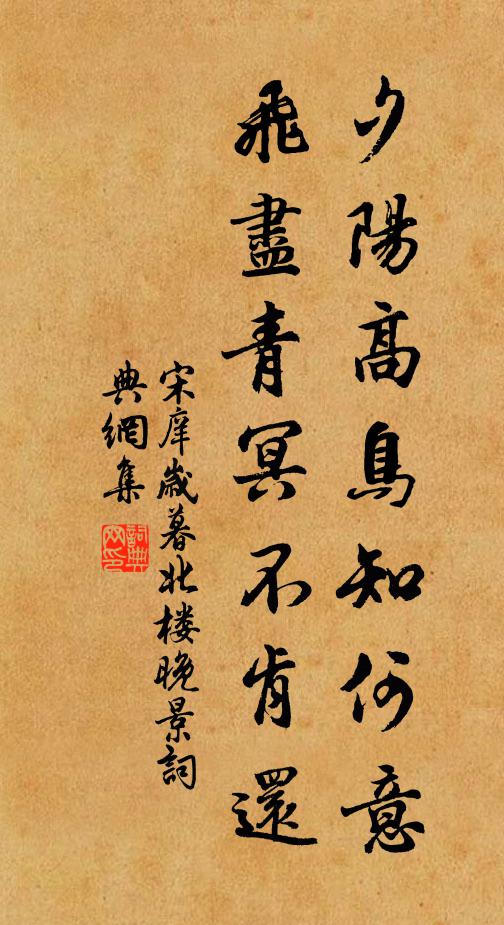 夕陽高鳥知何意
飛盡青冥不肯還
宋庠歲暮北楼晚景詞
典網集
詞典
网印